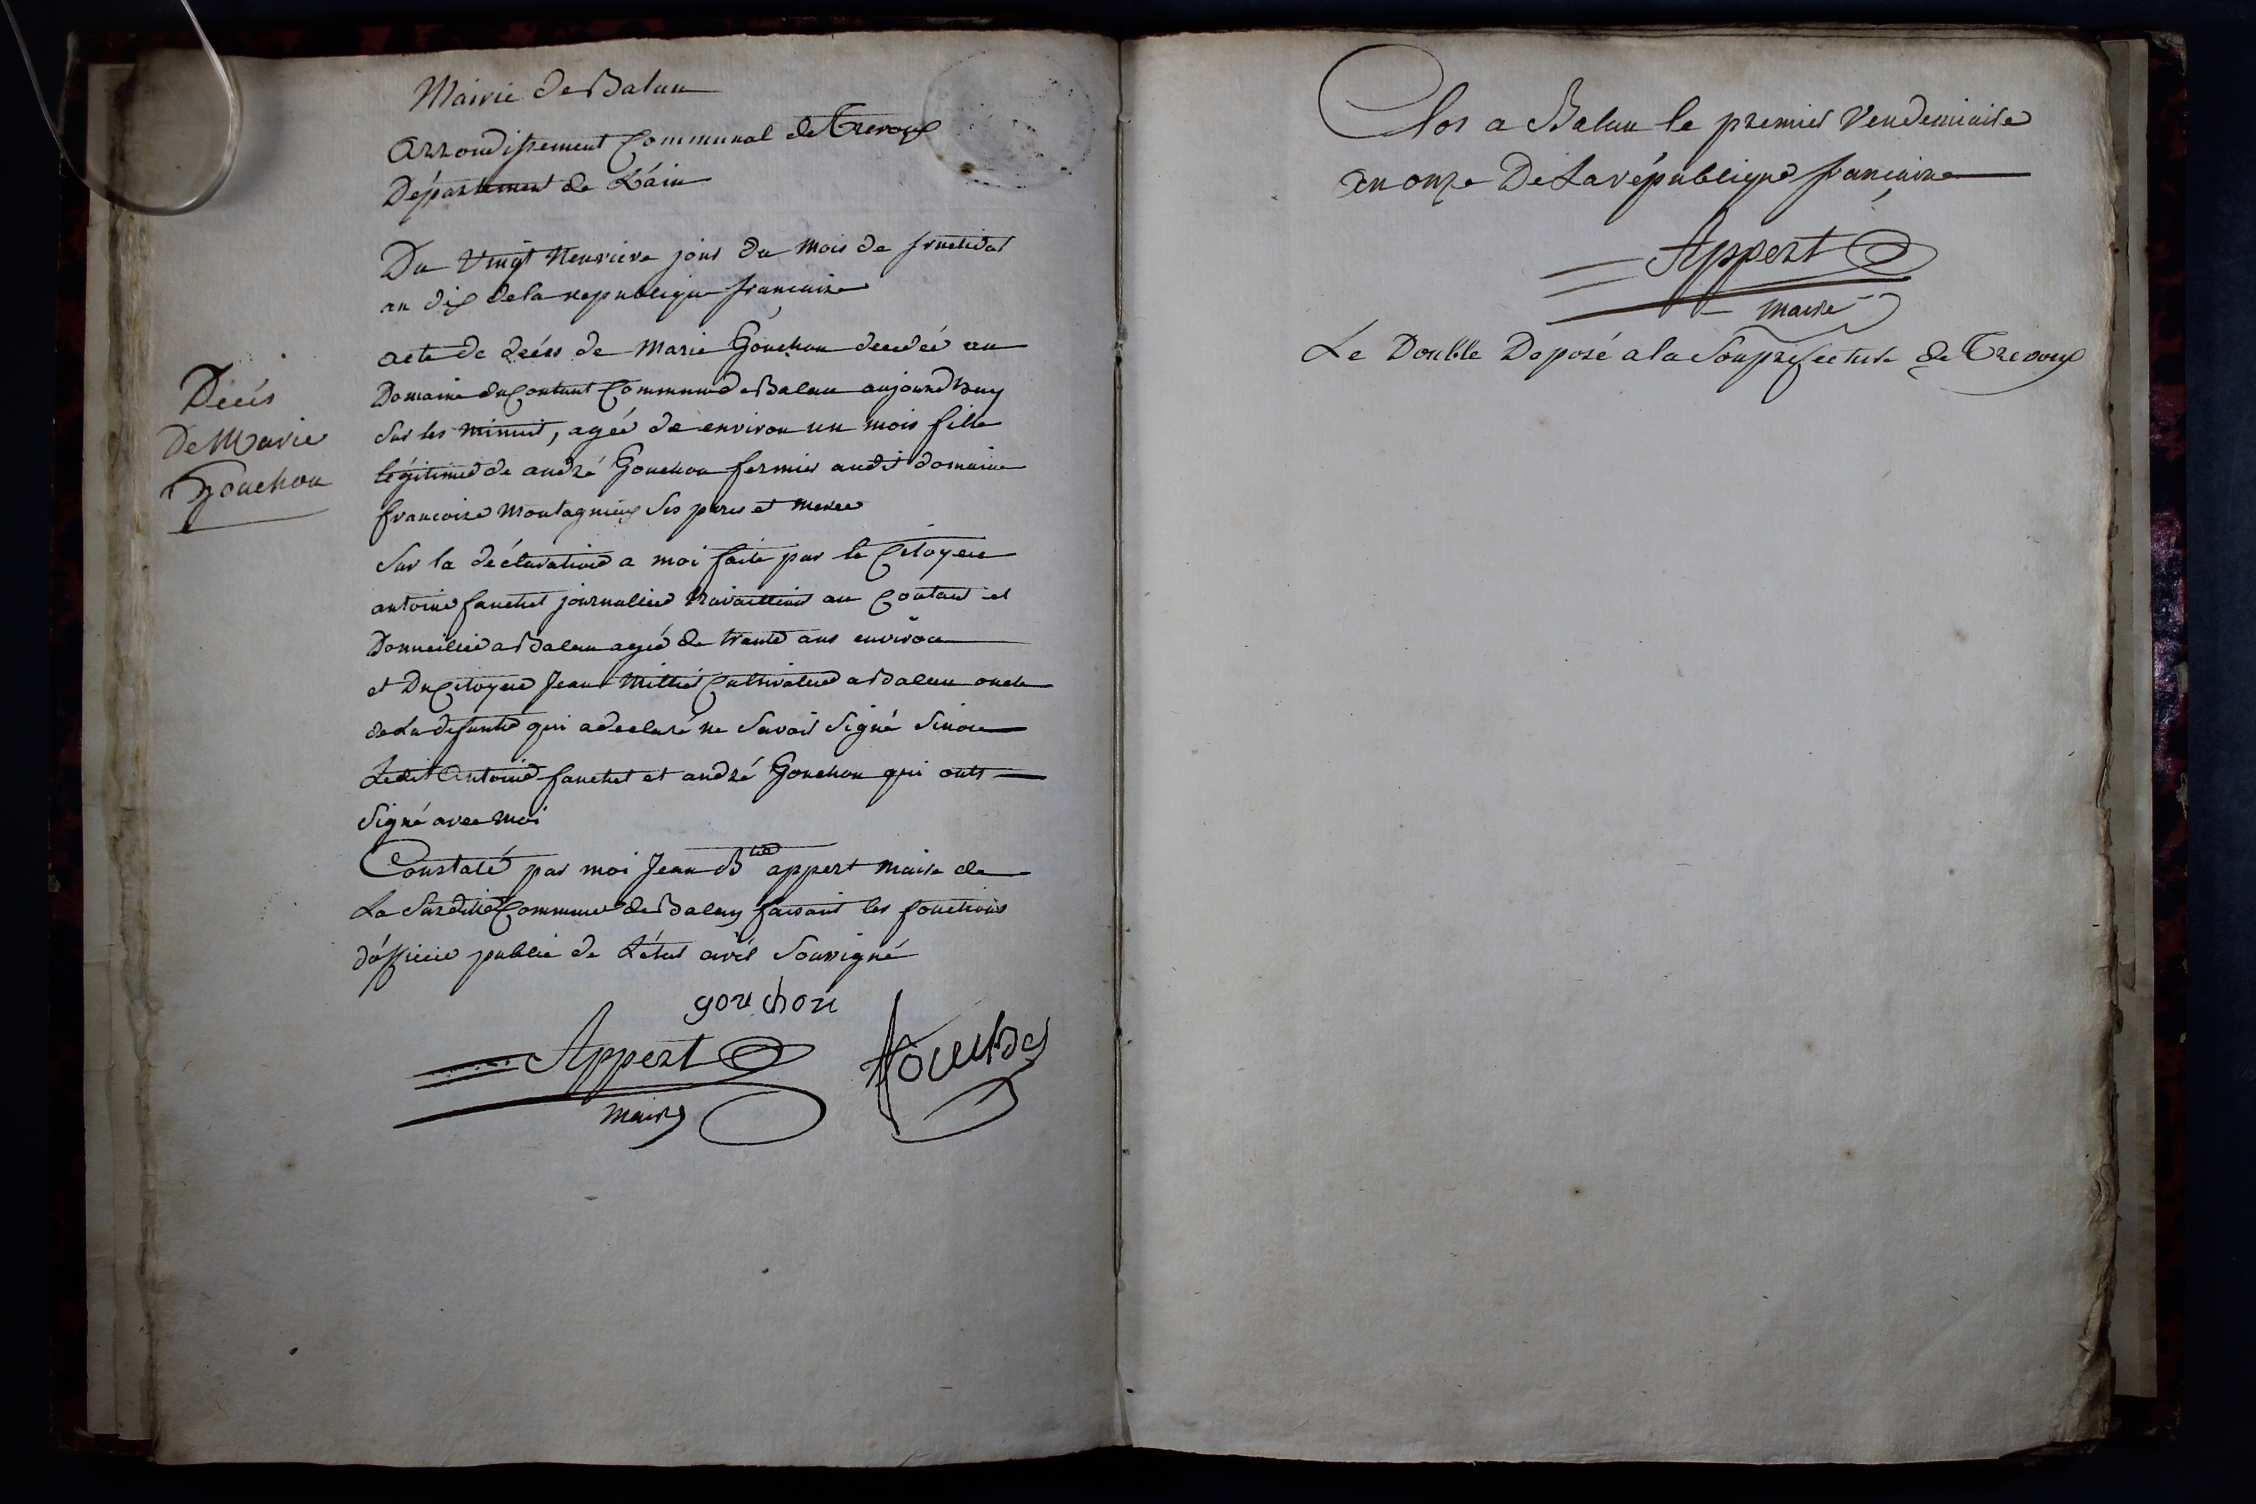 Mairie de Balan
arrondissement Communal de Trevoux
Département de L'ain
Du vingt neuvieve jour du mois de fructidor
an dix de la republique francaise
acte de décés de Marie Gouchon decedeé au
Domaine du Contant Commune de Balan aujourd'huy
sur les minuit, ageé de environ un mois fille
légitime de andré Gouchon fermier audit domaine
francoise Montagnieux ses peres et meree
Décés
De Marie
Gouchon
Sur la déclaration a moi faite par le Citoyen
antoine fauchet journalier travaillant au Contant et
Domicilié a Balan agé de trente ans environ
et Du Citoyen Jean Millet Cultivateur a Balan oncle
de La defunte qui a declaré ne savoir signé sinon
Ledit Antoine fauchet et andré Gouchon qui onts
signé avec moi
Constaté par moi Jean Bte appert maire de
La susditte Commune de Balan faisant les fonctions
d'officier public de L'état civil soussigné
gouchon
Appert
maire
Clos a Balan le premier Vendemiaire
an onze De La république francaise
Appert
maire
Le Double Deposé a la Souprefecture de Trevoux